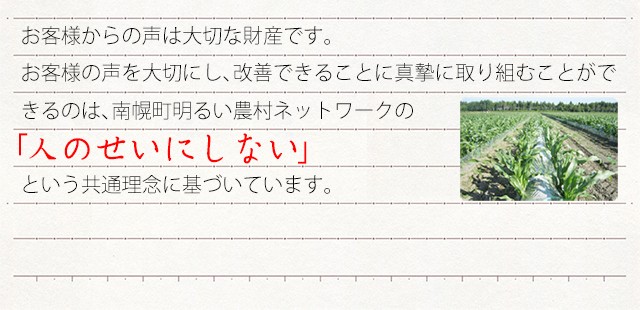 お客様からの声は大切な財産です。
お客様の声を大切にし、改善できることに真摯に取り組むことがで
きるのは、南幌町明るい農村ネットワークの
「人のせいにしない」
という共通理念に基づいています。